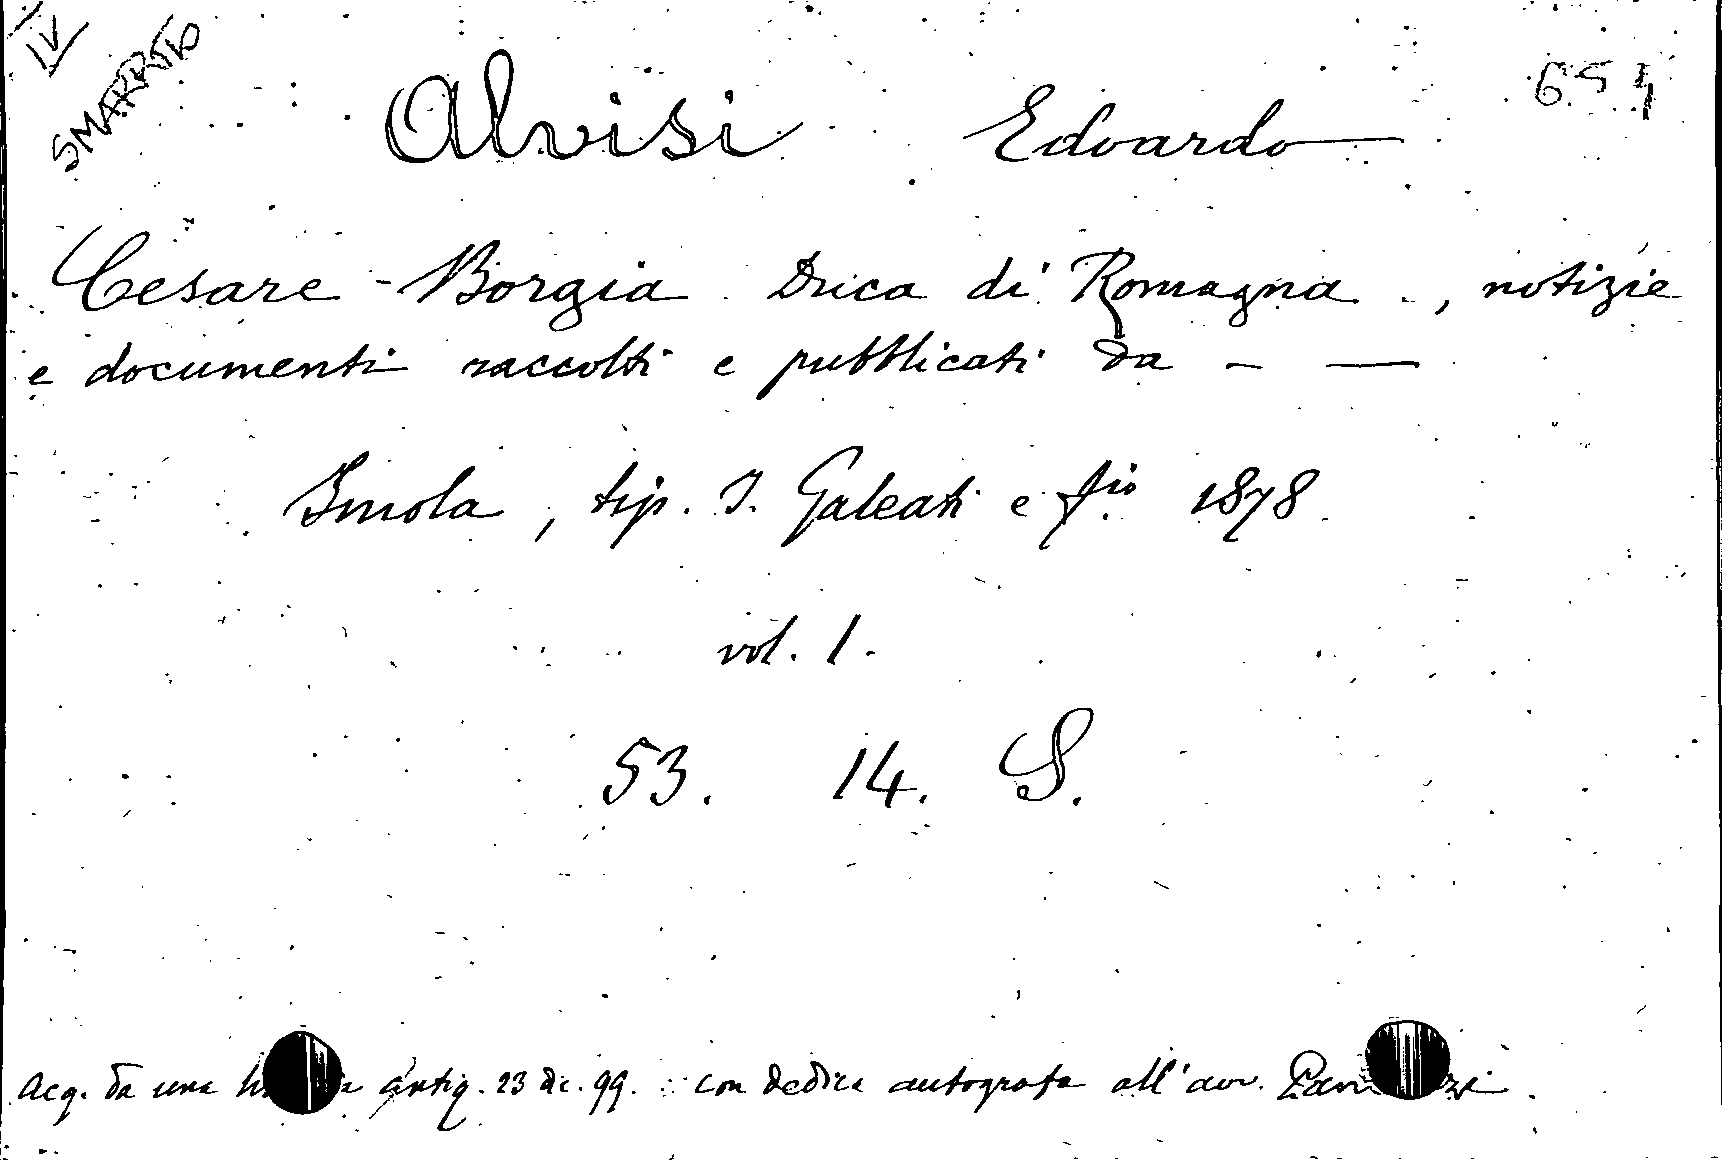 IV
SMARRITO
654
Alvisi Edoardo
Cesare Borgia Duca di Romagna, notizie
e documenti raccolti e pubblicati da — —
Imola, tip. I. Galeati e fio 1878
vol. 1.
53. 14. S.
Acq. da una antiq. 23 dic. 99. con dedica autografa all'avv.